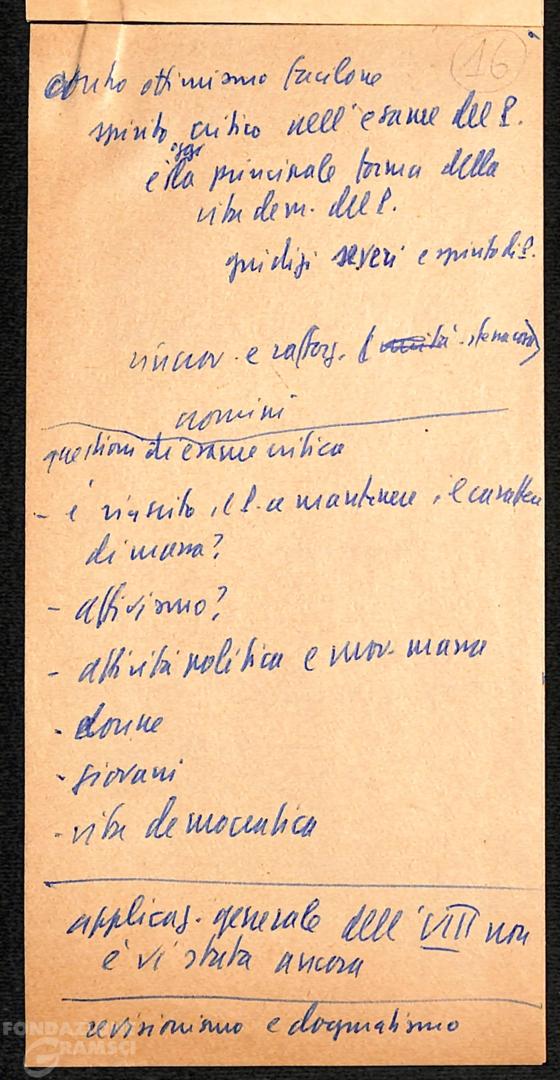 16
contro ottimismo facilone
spirito critico nell'esame del P.
oggi
è la principale forma della
vita dem. del P.
giudizi severi e spirito di P.
rinnov. e rafforz.
uomini
questioni di esame critica
- è riuscito il P. a mantenere il carattere
di massa?
- attivismo?
- attività politica e mov. massa
- donne
- giovani
- vita democratica
applicaz. generale dell'VIII non
è vi stata ancora
revisionismo e dogmatismo
FONDAZI
GRAMSCI